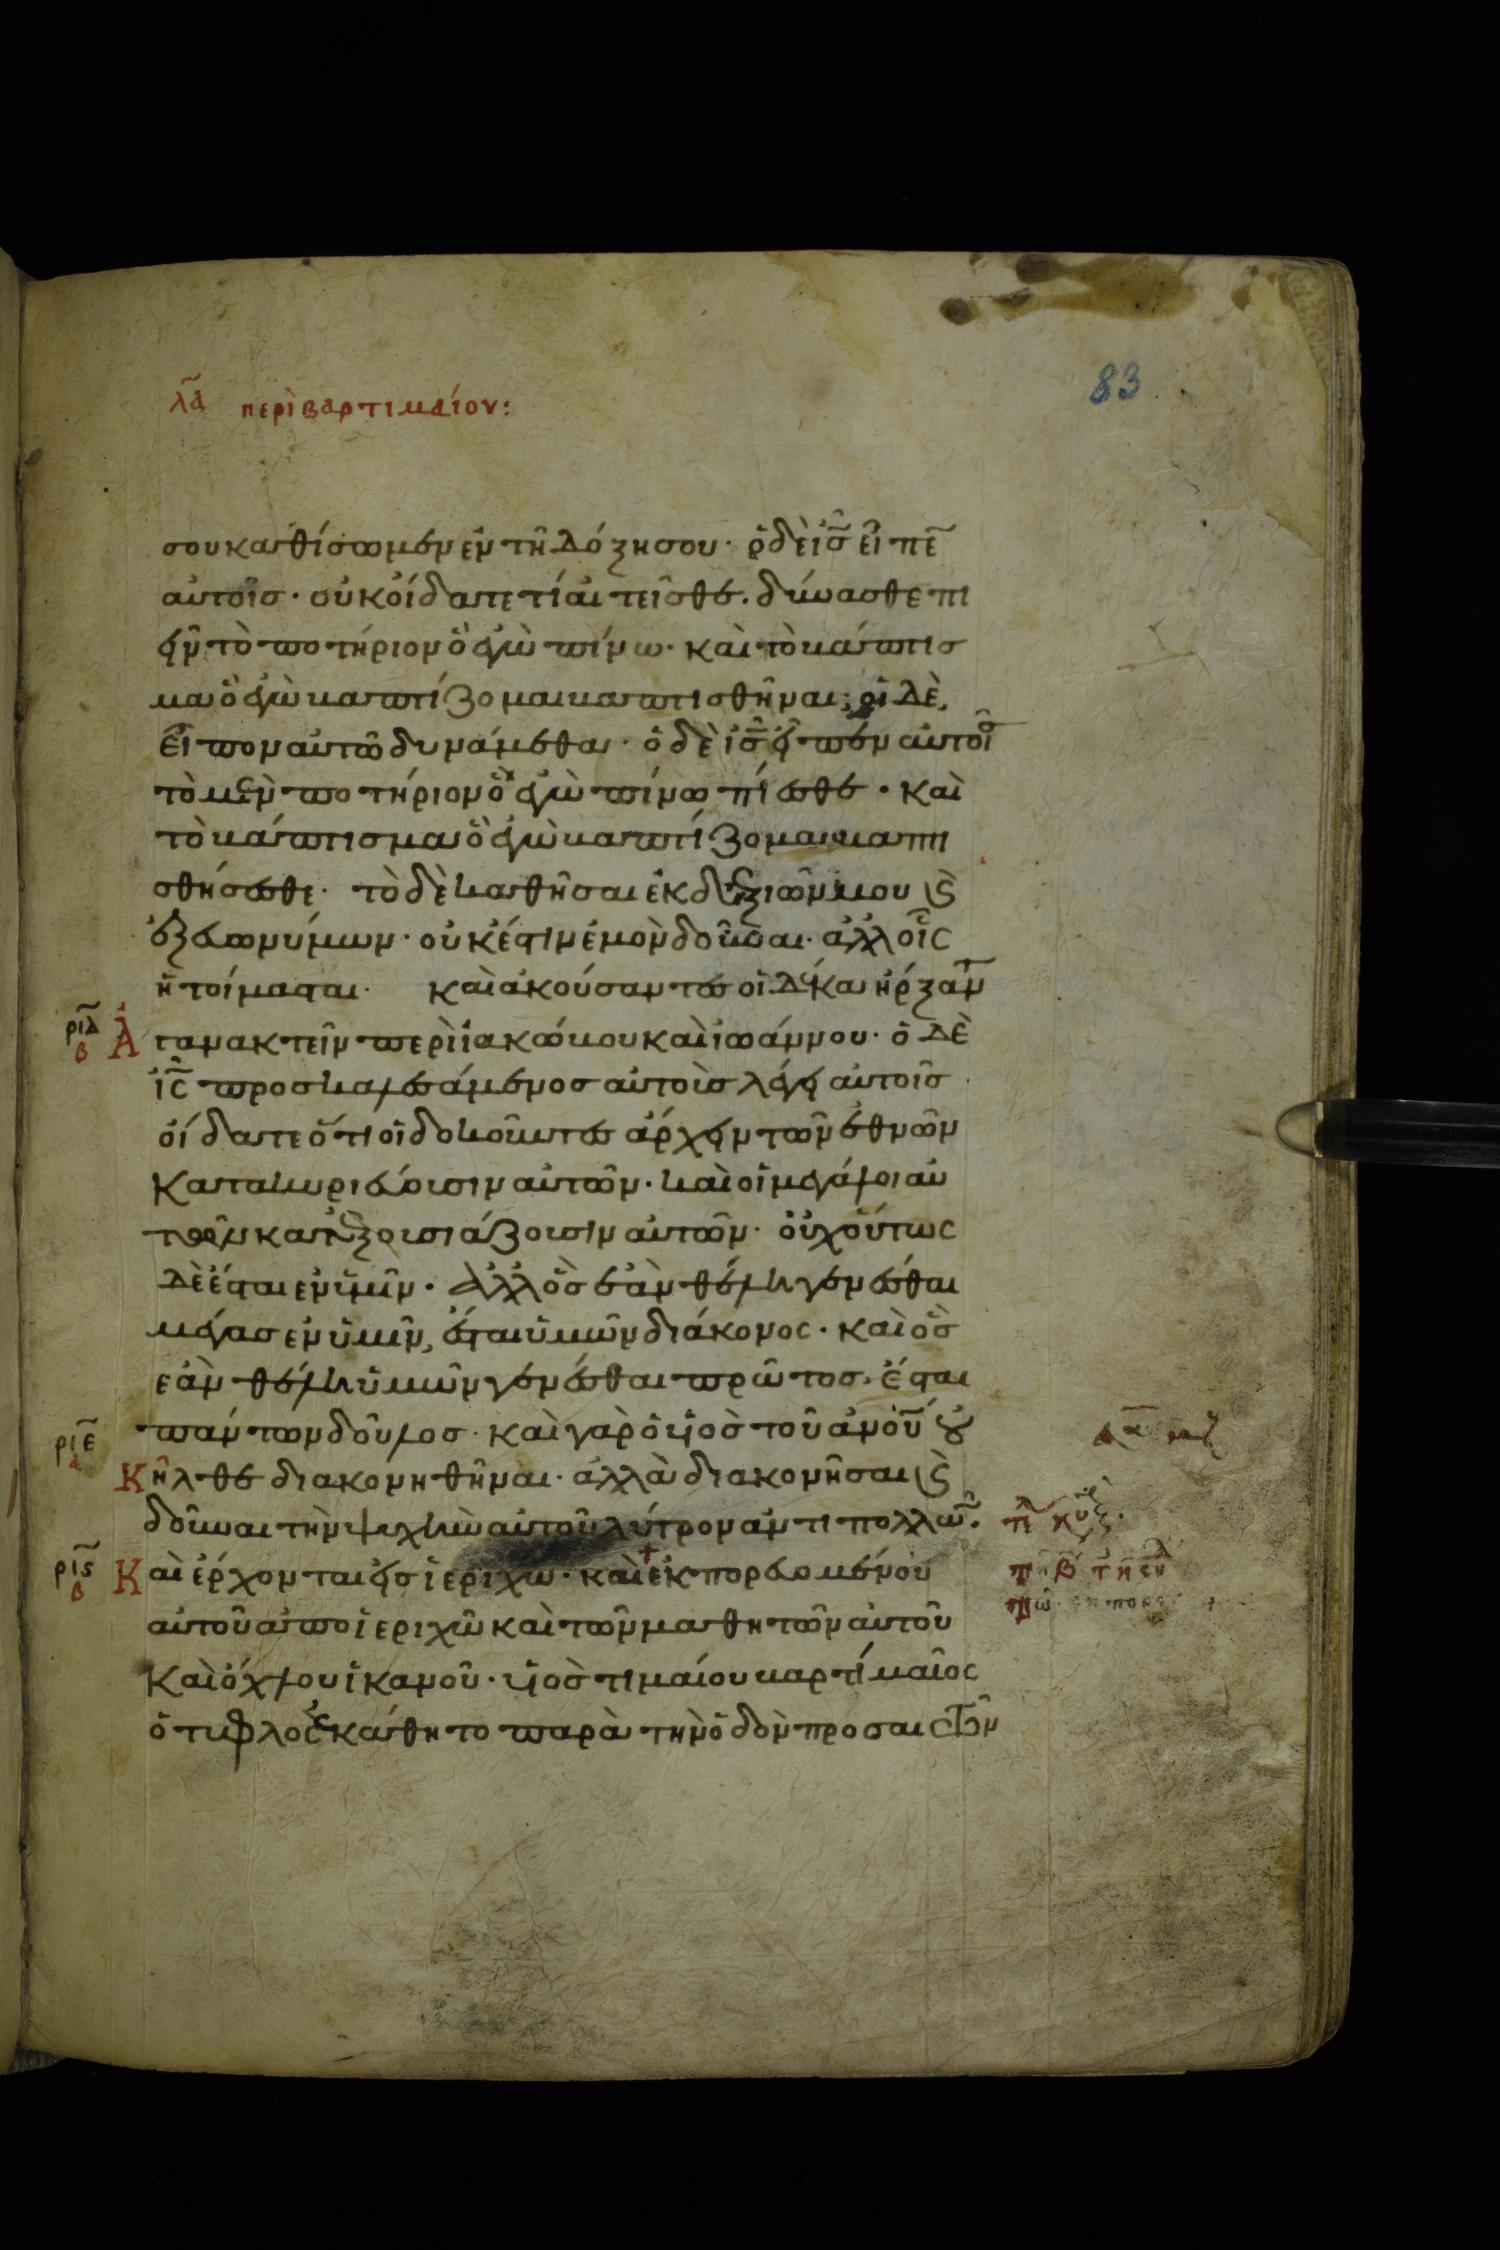 λα περὶ βαρτιμαίου:
83
σου καθίσωμεν ἐν τῆ δόξη σου· ὁ δὲ ις εἶπε
αὐτοῖσ· οὐκ οἴδατε τί αἰτεῖσθε. δύνασθε πι
εῖν τὸ ποτήριον ὃ ἐγὼ πίνω· καὶ τὸ βάπτισ
μα ὃ ἐγὼ βαπτίζομαι βαπτισθῆναι; οἱ δὲ,
εἶπον αὐτῶ δυνάμεθα· ὁ δὲ ις εἶπεν αὐτοῖς
τὸ μὲν ποτήριον ὃ ἐγὼ πίνω πίεσθε· καὶ
τὸ βάπτισμα ὃ ἐγὼ βαπτίζομαι βαπτι
σθήσεσθε· τὸ δὲ καθῆσαι ἐκ δεξιῶν μου ϗ
ἐξ εὐωνύμων· οὐκ ἔστιν ἐμὸν δοῦναι· ἀλλ οἷς
ἡτοίμασται· καὶ ἀκούσαντεσ οἱ δέκα ἠρξαν
ριδ
β
Ἀ
τανακτεῖν περὶ ἰακώβου καὶ ἰωάννου· ὁ δὲ
ις προσκαλεσάμενοσ αὐτοὺσ λέγει αὐτοῖσ
οἴδατε ὅτι οἱ δοκοῦντεσ ἄρχειν τῶν ἐθνῶν
κατακυριεύουσιν αὐτῶν· καὶ οἱ μεγάλοι αὐ
τῶν κατεξουσιάζουσιν αὐτῶν· οὐχ οὕτως
δὲ ἔσται ἐν ὑμῖν· ἀλλ ὃσ ἐὰν θέλη γενέσθαι
μέγασ ἐν ὑμῖν, ἔσται ὑμῶν διάκονος· καὶ ὃσ
ἐὰν θέλη ὑμῶν γενέσθαι πρῶτοσ· ἔσται
πάντων δοῦλοσ· καὶ γὰρ ὁ υἱὸσ τοῦ ανου οὐ
ριε
α
Κ ἦλθε διακονηθῆναι· ἀλλὰ διακονῆσαι ϗ
δοῦναι τὴν ψυχὴν αὐτοῦ λύτρον ἀντὶ πολλῶν·
ριϛ
β
Καὶ ἔρχονται εἰσ ἱεριχώ· καὶ + ἐκπορευομένου
αὐτοῦ ἀπο ἱεριχῶ καὶ τῶν μαθητῶν αὐτοῦ
καὶ ὄχλου ἱκανοῦ· υἱὸσ τιμαίου βαρτίμαῖος
ὁ τυφλὸς ἐκάθητο παρὰ τὴν ὁδὸν προσαιτῶν